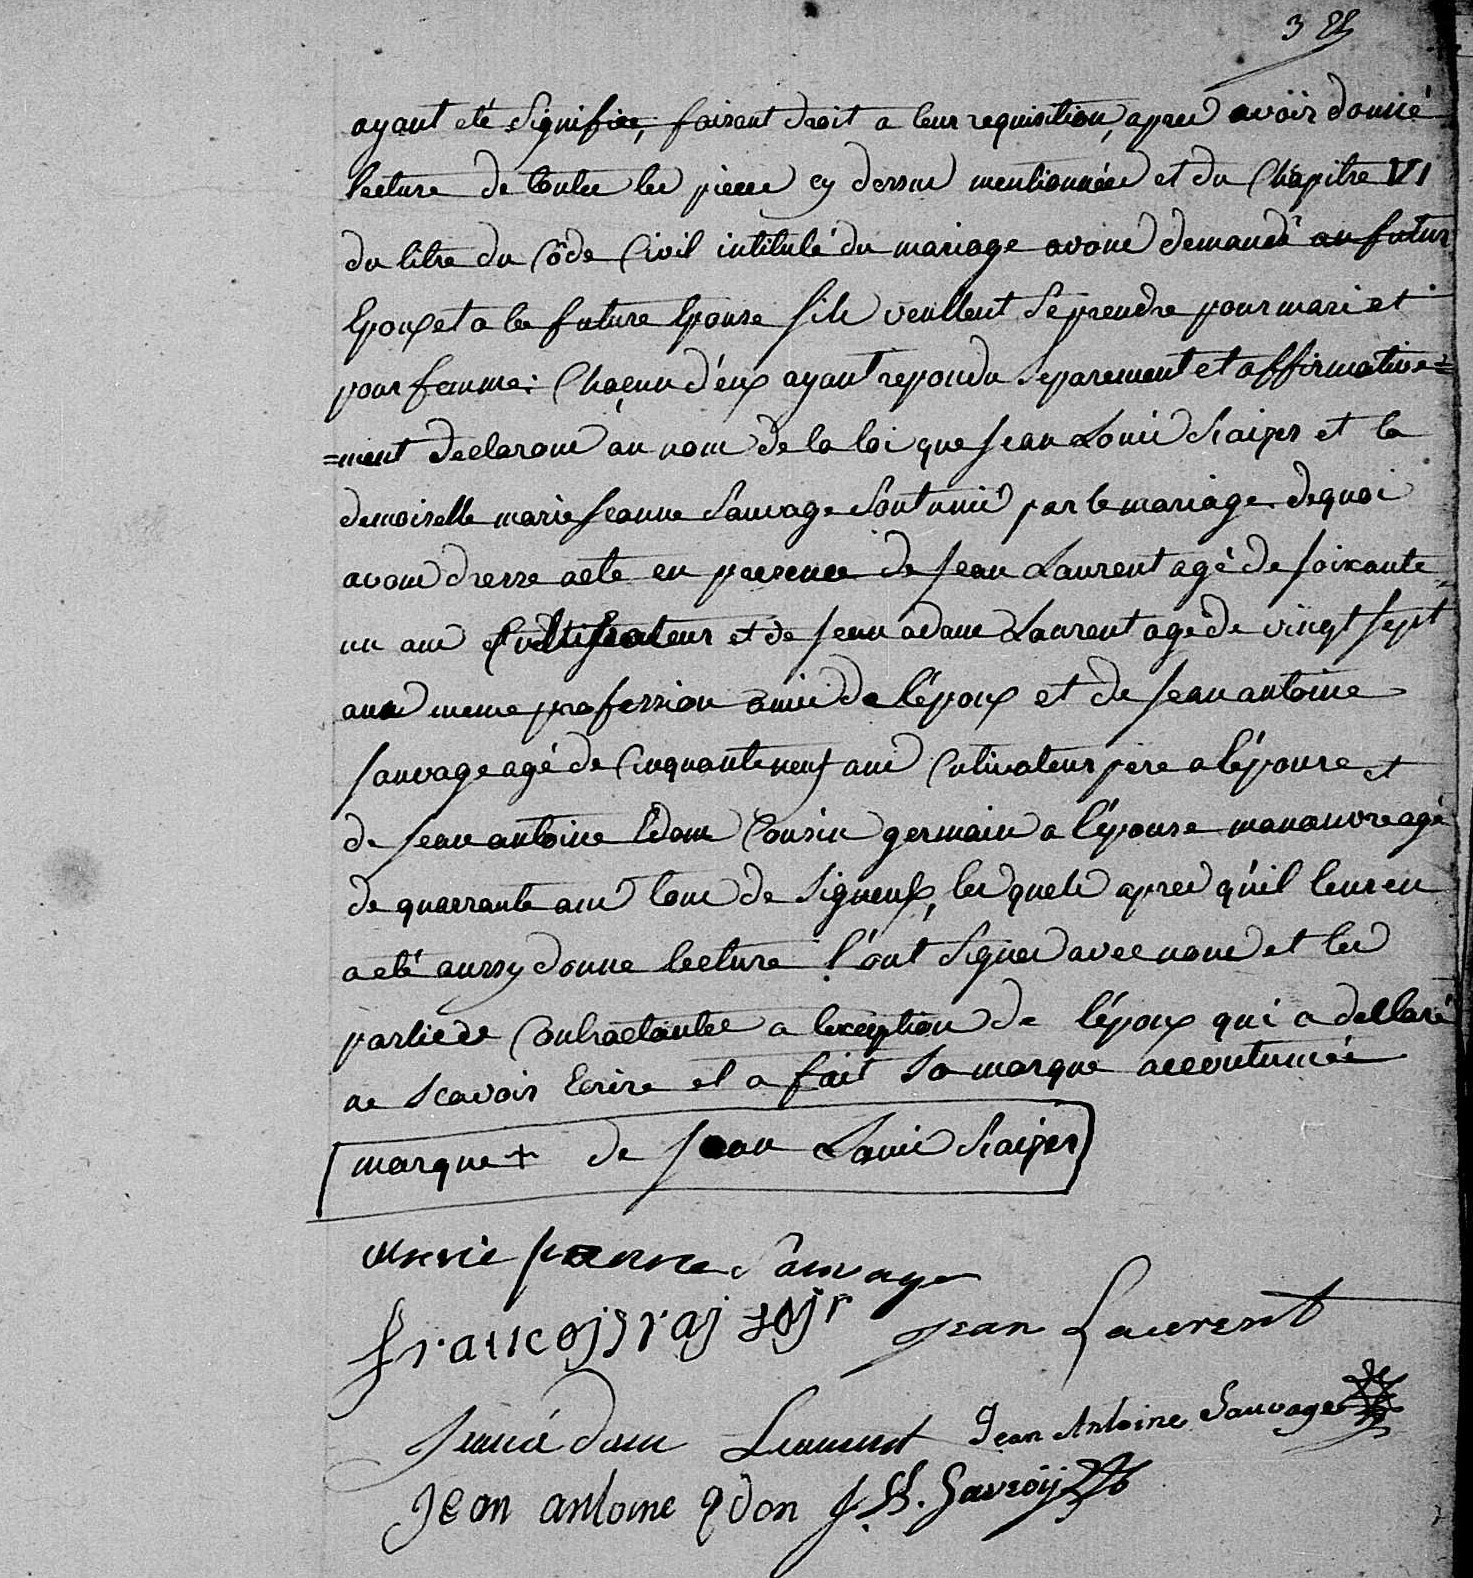 ayant été Signifiée, faisant droit a leur requisition, apres avoir donné
lecture de toutes les pieces cy dessus mentionnées et du Chapitre VI
du titre du Côde Civil intitulé du mariage avons demandé au futur
Epoux et a la future Epouse s'ils veullent se prendre pour mari et
pour femme: Chacun d'eux ayant repondu Separement et affirmative=
=ment declarons au nom de la loi que Jean Louis Kaiser et la
demoiselle marie Jeanne Sauvage Sont unis par le mariage. dequoi
avons dresse acte en presence de Jean Laurent agé de soixante
un ans Cultivateur et de Jean adam Laurent age de vingt sept
ans meme profession amis de l'époux et de Jean antoine
Sauvage agé de Cinquante neuf ans Cultivateur pere a l'épouse et
de Jean antoine Edom Cousin germain a l'épouse manouvre agé
de quarrante ans tous de Signeulx, les quels apres qu'il leur en
a eté aussy donne lecture l'ont Signer avec nous et les
parties Contractantes a l'exception de l'époux qui a dellaré
ne Scavoir Ecrire et a fait Sa marque accoutumée
marque + de Jean Louis Kaiser
marie Jeanne Sauvage
Jean Laurent
Laurent Jean Antoine Sauvage
Jean antoine Edon